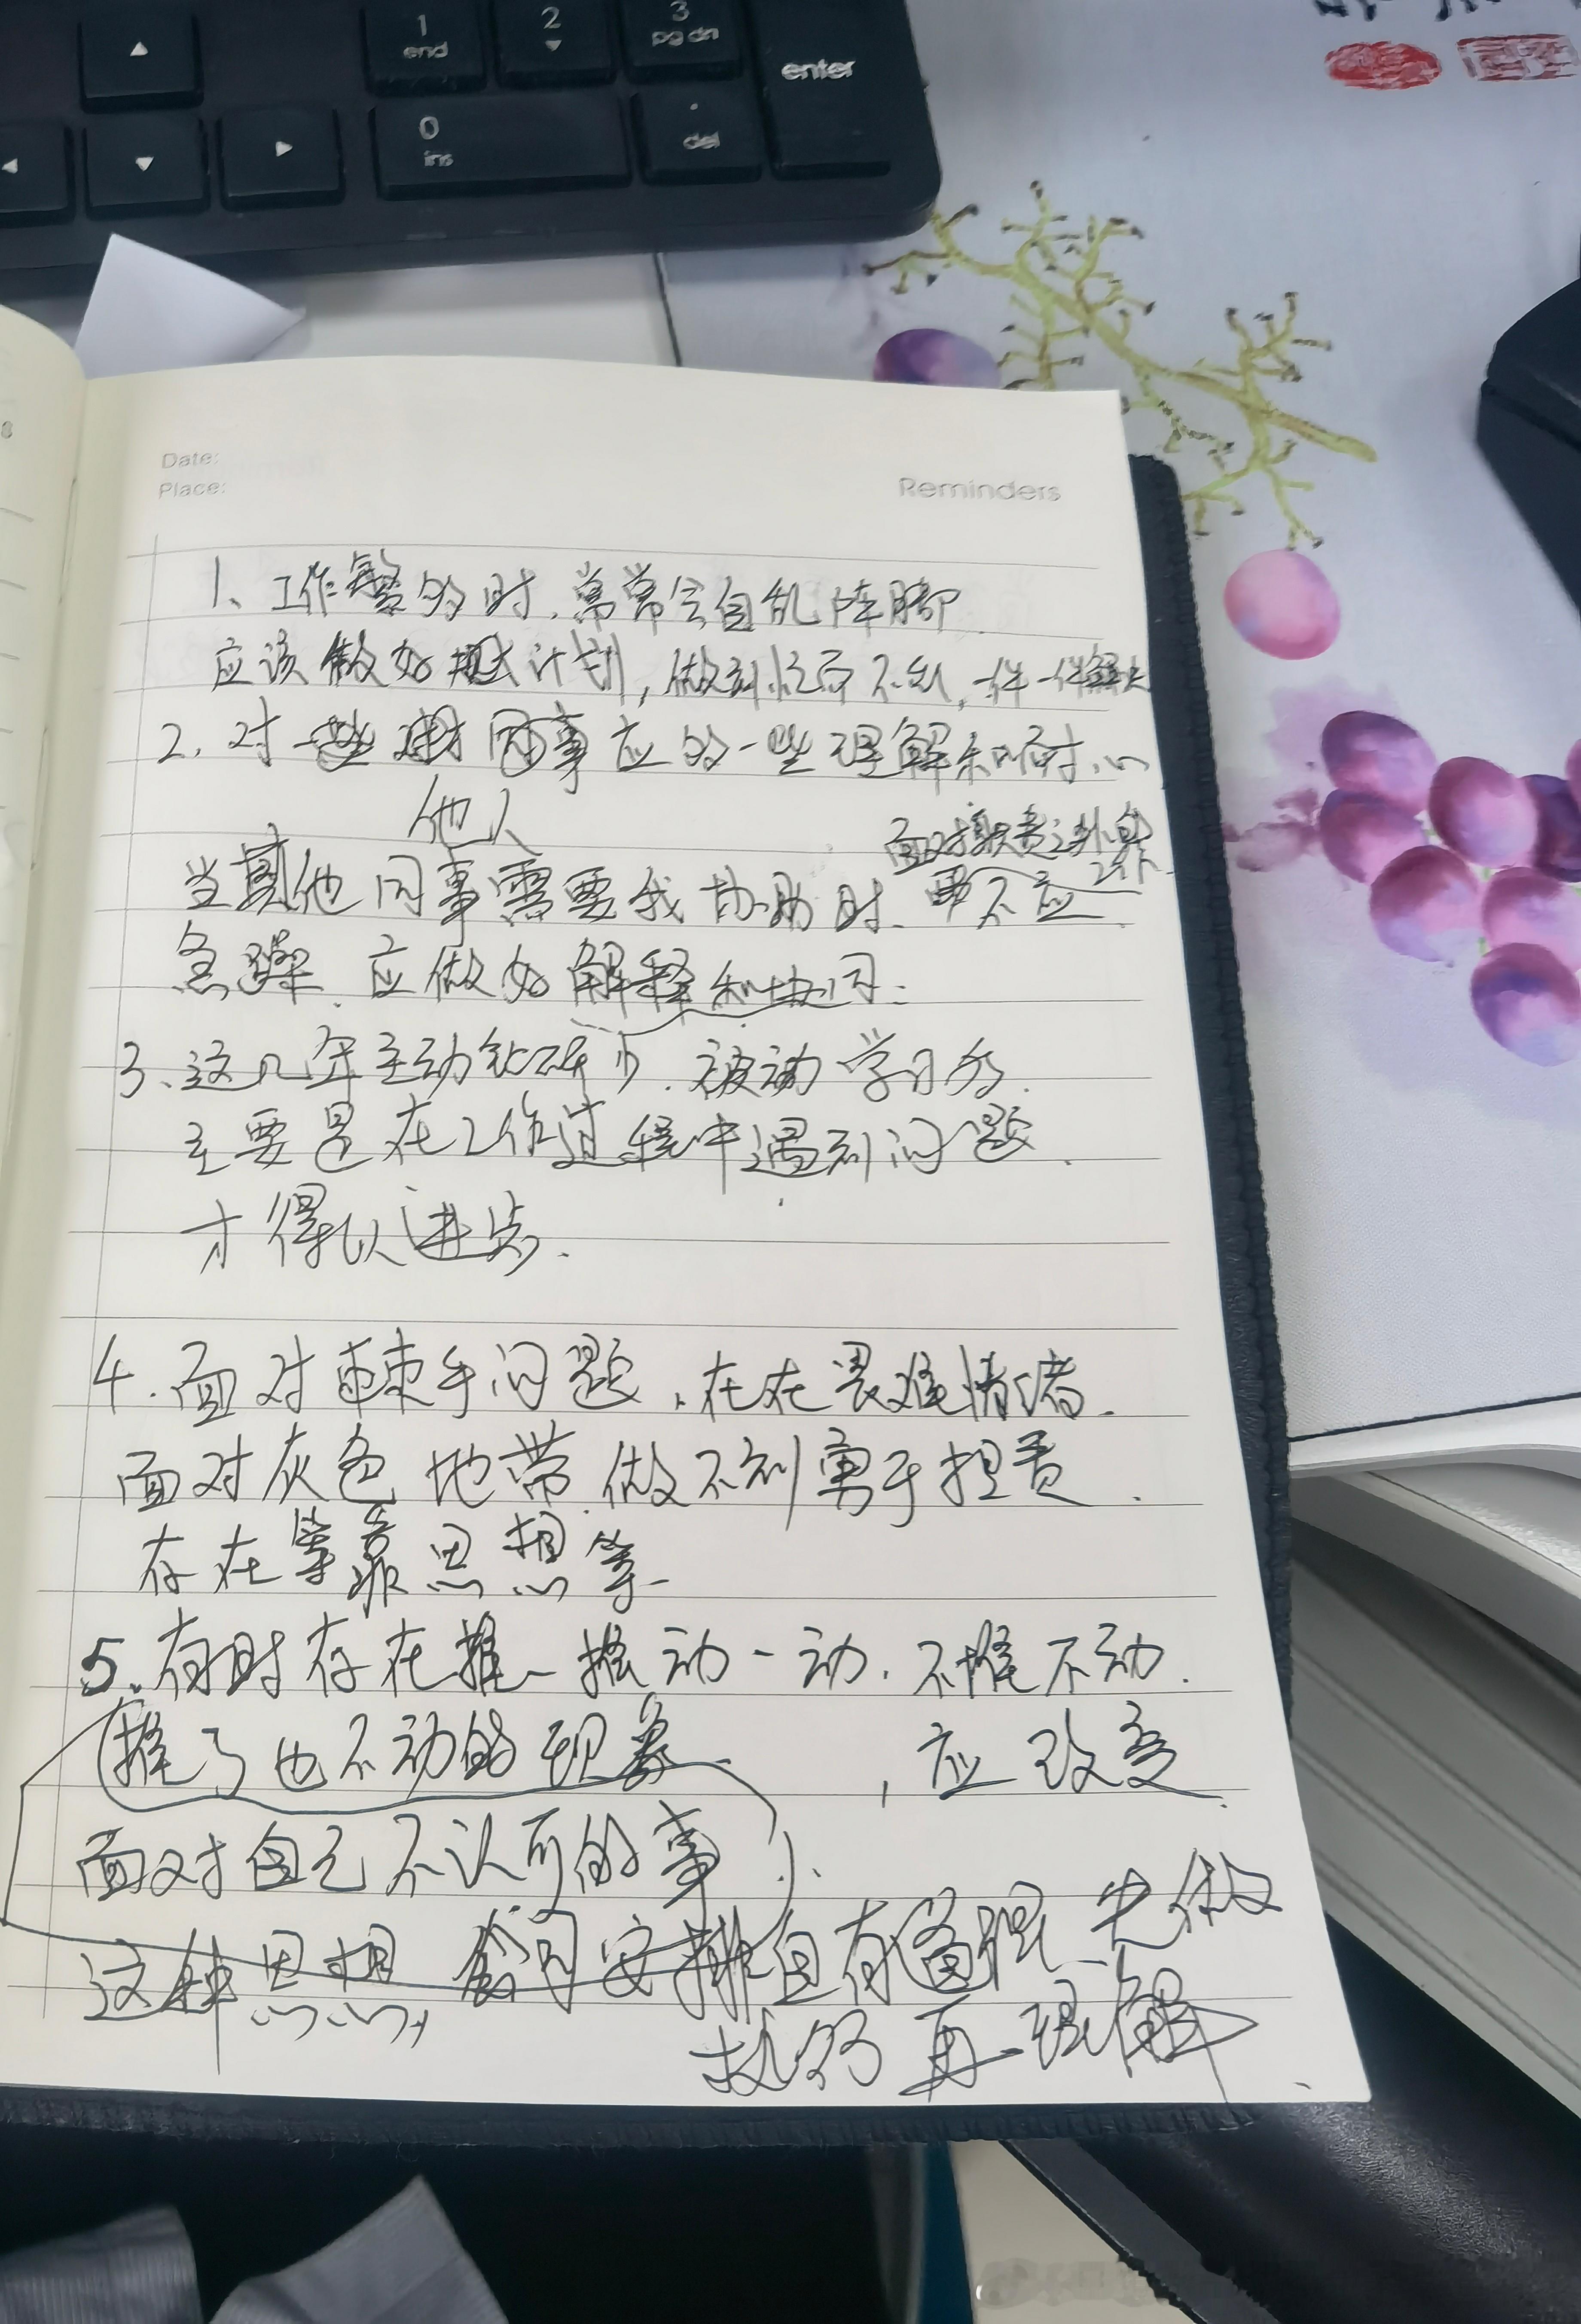 1
end
2
3
pg dn
enter
0
ins
.
del
8
Date:
Place:
Reminders
1、工作繁多时,常常会自乱阵脚
应该做好计划,做到忙而不乱,一件一件解决
2、对同事应的一些理解和耐心
他人
面对推责
当其他同事需要我协助时、不应
急躁、应做好解释和协同;
3、这几年主动钻研少、被动学习多.
主要是在工作过程中遇到问题、
才得以进步.
4.面对棘手问题,存在畏难情绪.
面对灰色地带,做不到勇于担责.
存在等靠思想等
5、有时存在推一推动一动.不推不动.
推了也不动的现象 ,应改变
面对自己不认可的事
这种思想,公司安排且有 先做
执行再理解、